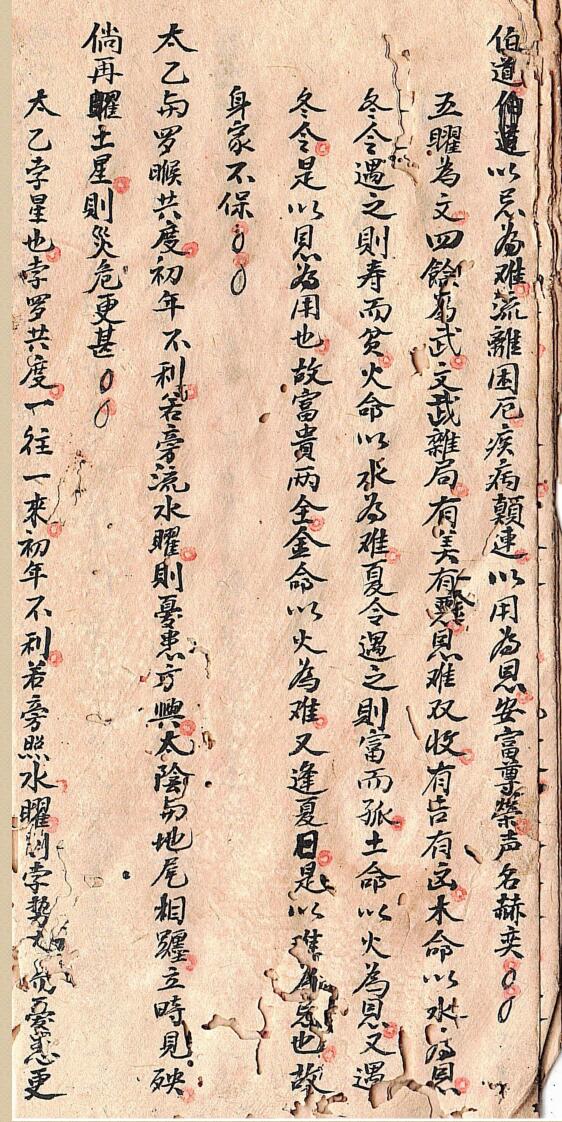 伯道伯道以忌為难流離困厄疾病顛連以用為恩安富尊榮声名赫奕
五曜為文四餘為武文武雜局有美有惡恩难双收有吉有凶木命以水為恩
冬令遇之則寿而贫火命以水為难夏令遇之則富而孤土命以火為恩又遇
冬令是以恩為用也故富貴两全金命以火為难又逢夏日是以难為忌也故
身家不保
太乙与罗睺共度初年不利若旁流水曜則憂患方興太陰与地尾相躔立時見殃
倘再曜土星則災危更甚
太乙孛星也孛罗共度一往一来初年不利若旁照水曜則孛势憂患更